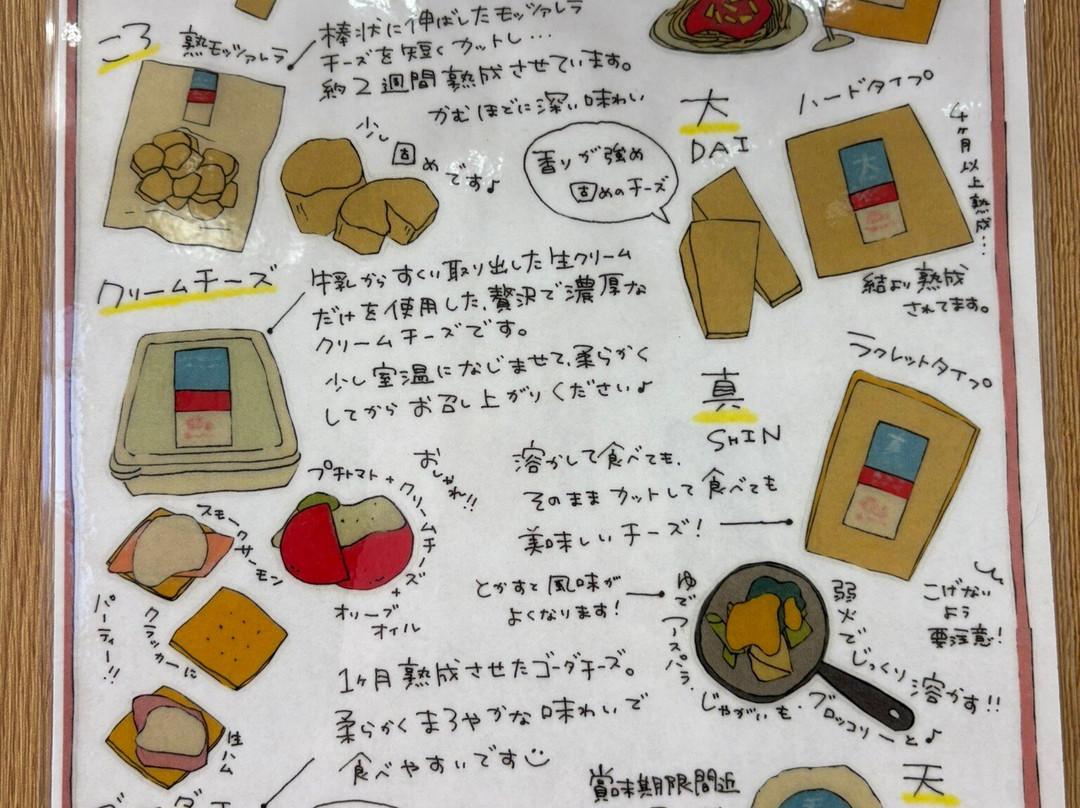 ころ 熟モッツァレラ
棒状に伸ばしたモッツァレラ
チーズを短くカットし…
約2週間熟成させています。
かむほどに深い味わい
少し
固め
です♪
大
DAI
ハードタイプ
香りが強め
固めのチーズ
大
4ヶ月以上熟成…
結より熟成
されてます。
クリームチーズ
牛乳からすくい取り出した生クリーム
だけを使用した、贅沢で濃厚な
クリームチーズです。
少し室温になじませて、柔らかく
してからお召し上がりください♪
真
SHIN
ラクレットタイプ
溶かして食べても、
そのままカットして食べても
美味しいチーズ!
とかすて風味が
よくなります!
おしゃれ!!
プチトマト+クリームチーズ+
オリーブ
オイル
スモークサーモン
クラッカーに
パーティー!!
生ハム
ゆでアースパラ、
じゃがいも、ブロッコリーと♪
弱火でじっくり溶かす!!
こげない
よう
要注意!
1ヶ月熟成させたゴーダチーズ。
柔らかくまろやかな味わいで
食べやすいです
賞味期限間近
天